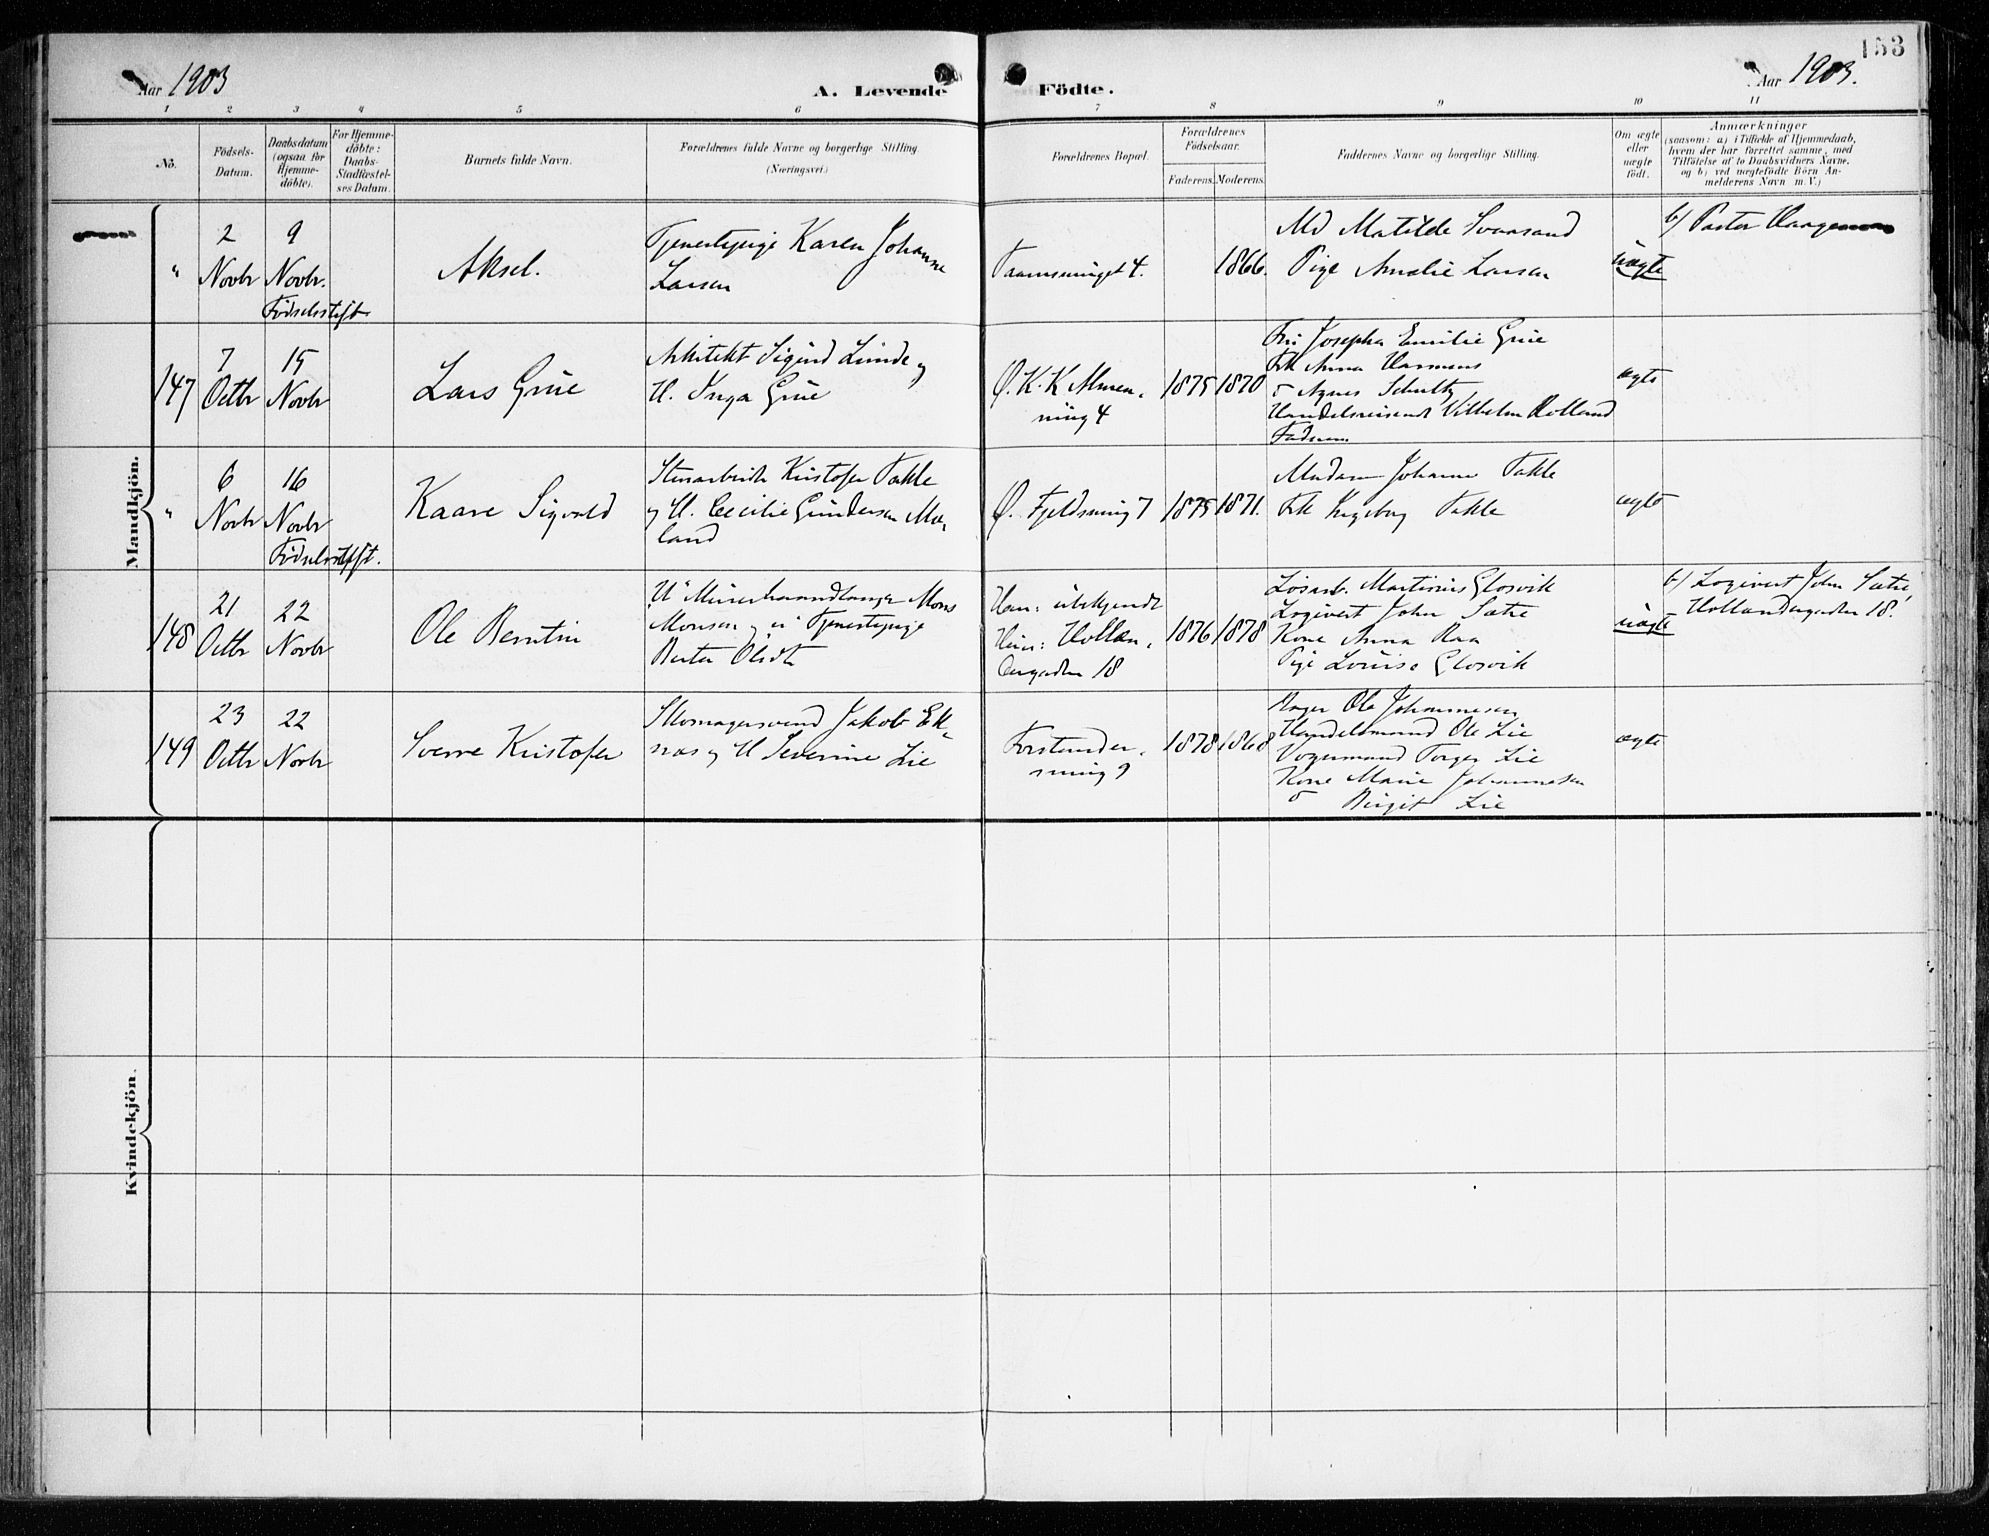 153
Aar 1903
A. Levende Födte.
Aar 1903.
1 2 3 4 5 6 7 8 9 10 11
No.
Födsels-
Datum.
Daabsdatum
(ogsaa för
Hjemme-
döbte).
For Hjemme-
döbte:
Daabs-
Stadfæstel-
ses Datum.
Barnets fulde Navn.
Forældrenes fulde Navne og borgerlige Stilling.
(Næringsvei.)
Forældrenes Bopæl.
Forældrenes
Födselsaar.
Faderens.
Moderens.
Faddernes Navne og borgerlige Stilling.
Om ægte
eller
uægte
födt.
Anmærkninger
(saasom: a) i Tilfælde af Hjemmedaab,
hvem der har forrettet samme, med
Tilföielse af to Daabsvidners Navne,
og b) ved uægtefödte Börn An-
melderens Navn m. V.)
Mandkjön.
"
2
Novbr
9
Novbr.
Fødselsstift
Aksel.
Tjenestepige Karen Johanne
Larsen
4.
1866.
Md Matilde Svarsand
Pige Amalie Larsen
uægte
b) Pastor
147
7
Octbr
15
Novbr
Lars Grue
Arkitekt Sigurd Lunde og
H. Inga Grue
Ø. K. K Almen,
ning 4
1875
1870
Fru Josepha Emilie Grue
Frk Anna
" Agnes Schultz
Handelsreisende Vilhelm Rolland
Faderen
ægte
"
6
Novbr
16
Novbr
Fødselsstift.
Kaare Sigvald
Stenarbeider Kristofer Takle
og H. Cecilie Gundersen Mæ,
land
Ø. Fjeldsmug 7
1875
1871.
Madam Johanne Takle
Frk Ingeborg Takle
ægte
148
21
Octbr
22
Novbr
Ole Berntin
U Murerhaandlanger Mons
Monsen og u Tjenestepige
Berta Olsdtr
Han: ubekjendt
Hun: Hollæn,
dergaden 18
1876
1878
Løsarb. Martinus Glosvik
Logivert John Sætre
Kone Anna Raa
Pige Louise Glosvik
uægte
b) Logivert John Sætre,
Hollændergaden 18.
149
23
Octbr
22
Novbr
Sverre Kristofer
Skomagersvend Jakob Ek-
næs og H Severine Lie
Forstander,
smug 9
1878
1868
Bager Ole Johannesen
Handelsmand Ole Lie
Vognmand Torger Lie
Kone Marie Johannesen
" Birgit Lie
ægte
Kvindekjön.